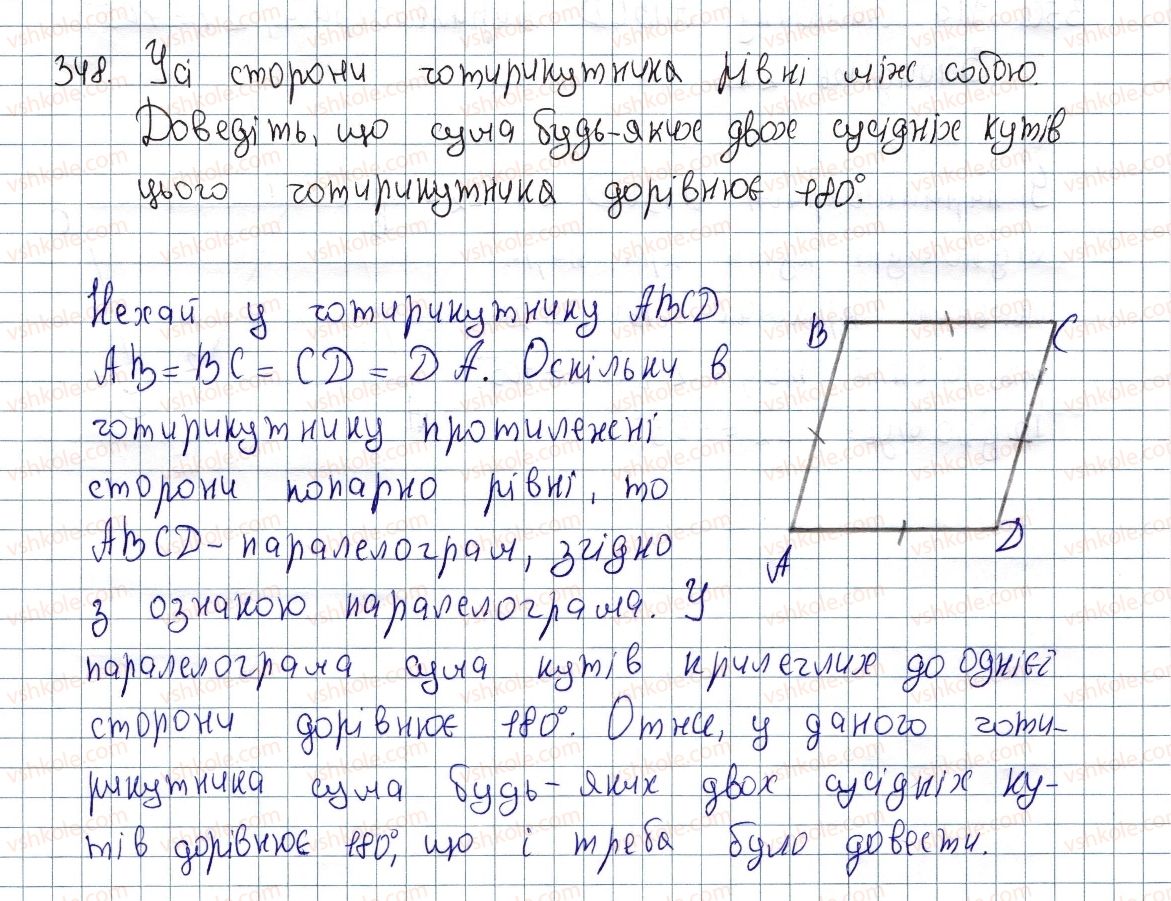 348. Усі сторони чотирикутника рівні між собою.
Доведіть, що сума будь-яких двох сусідніх кутів
цього чотирикутника дорівнює 180°.
Нехай у чотирикутнику ABCD
AB = BC = CD = DA. Оскільки в
чотирикутнику протилежні
сторони попарно рівні, то
ABCD - паралелограм, згідно
з ознакою паралелограма. У
паралелограма сума кутів прилеглих до однієї
сторони дорівнює 180°. Отже, у даного чоти-
рикутника сума будь-яких двох сусідніх ку-
тів дорівнює 180°, що і треба було довести.
B C
A D
vshkole.com